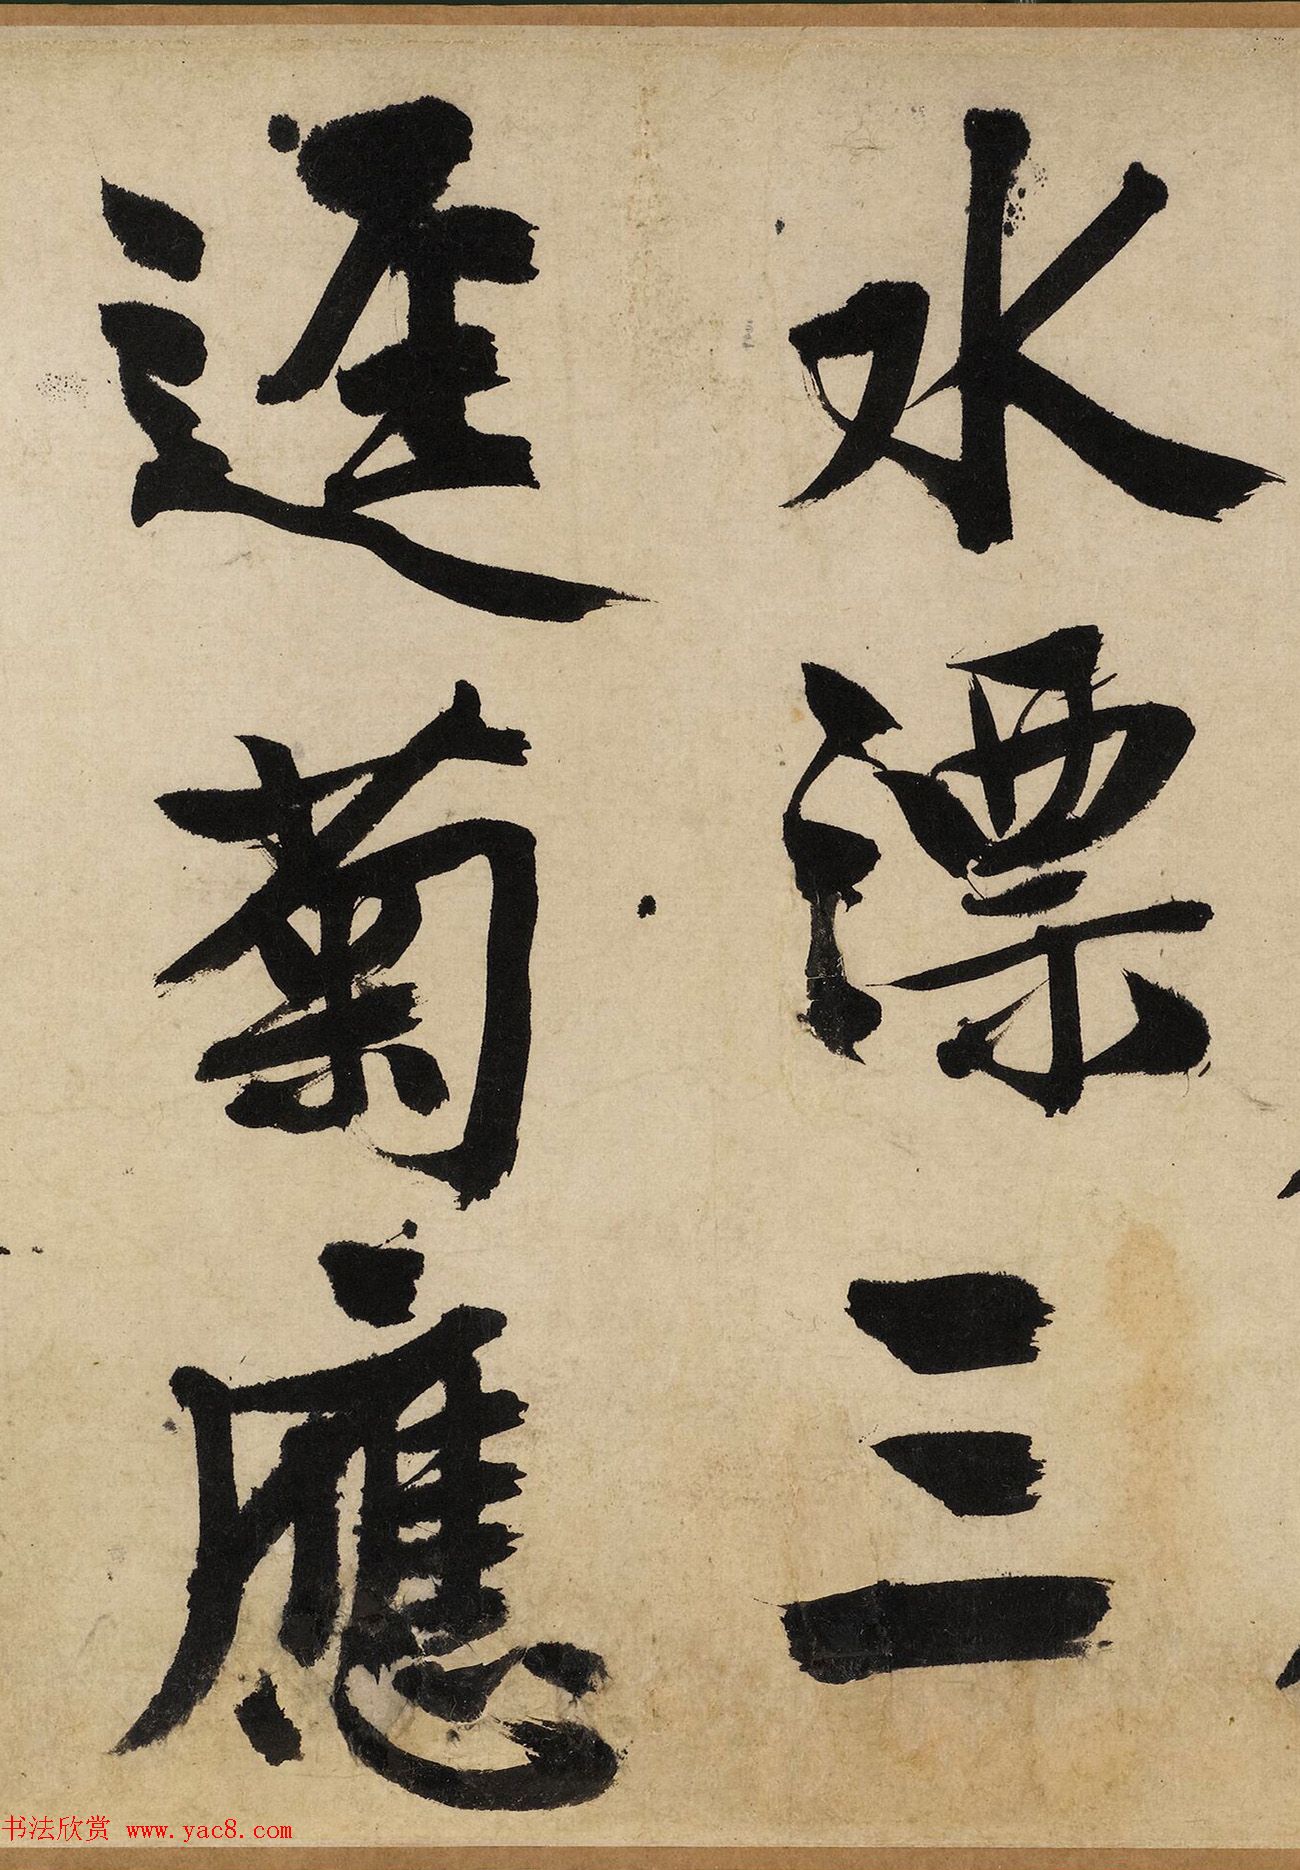 水漂三
遲菊應
书法欣赏 www.yac8.com